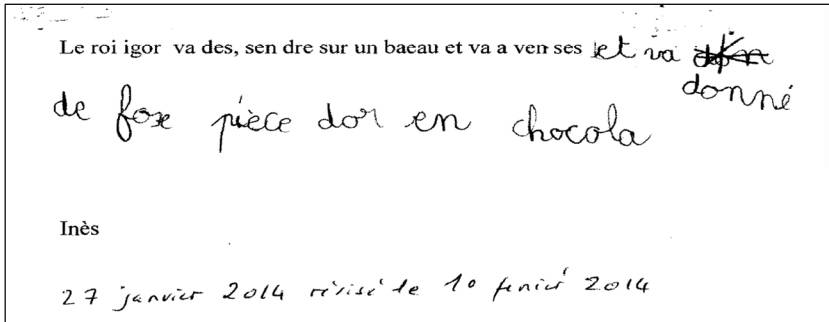 Le roi igor va des, sen dre sur un baeau et va a ven ses et va
donné
de foxe pièce dor en chocola
Inès
27 janvier 2014 révisé le 10 février 2014